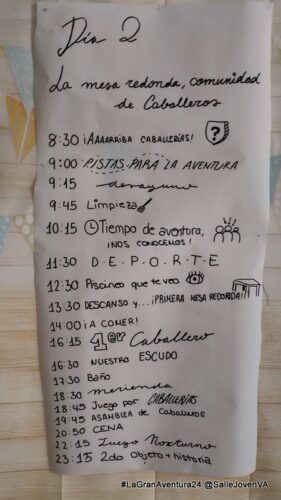 Día 2
La mesa redonda, comunidad
de Caballeros
8:30 ¡AAAARRIBA CABALLERÍAS! ?
9:00 PISTAS PARA LA AVENTURA
9:15 desayuno
9:45 Limpieza
10:15 Tiempo de aventura,
¡NOS CONOCEMOS!
11:30 D·E·P·O·R·T·E
12:30 Piscineo que te veo
13:30 DESCANSO y...¡PRIMERA MESA REDONDA!
14:00 ¡A COMER!
16:15 1er Caballero
16:30 NUESTRO ESCUDO
17:30 Baño
18:30 merienda
18:45 Juego por CABALLERÍAS
19:45 ASAMBLEA de Caballeros
20:50 CENA
22:15 Juego Nocturno
23:15 2do Objeto + historia
#LaGranAventura24 @SalleJovenVA